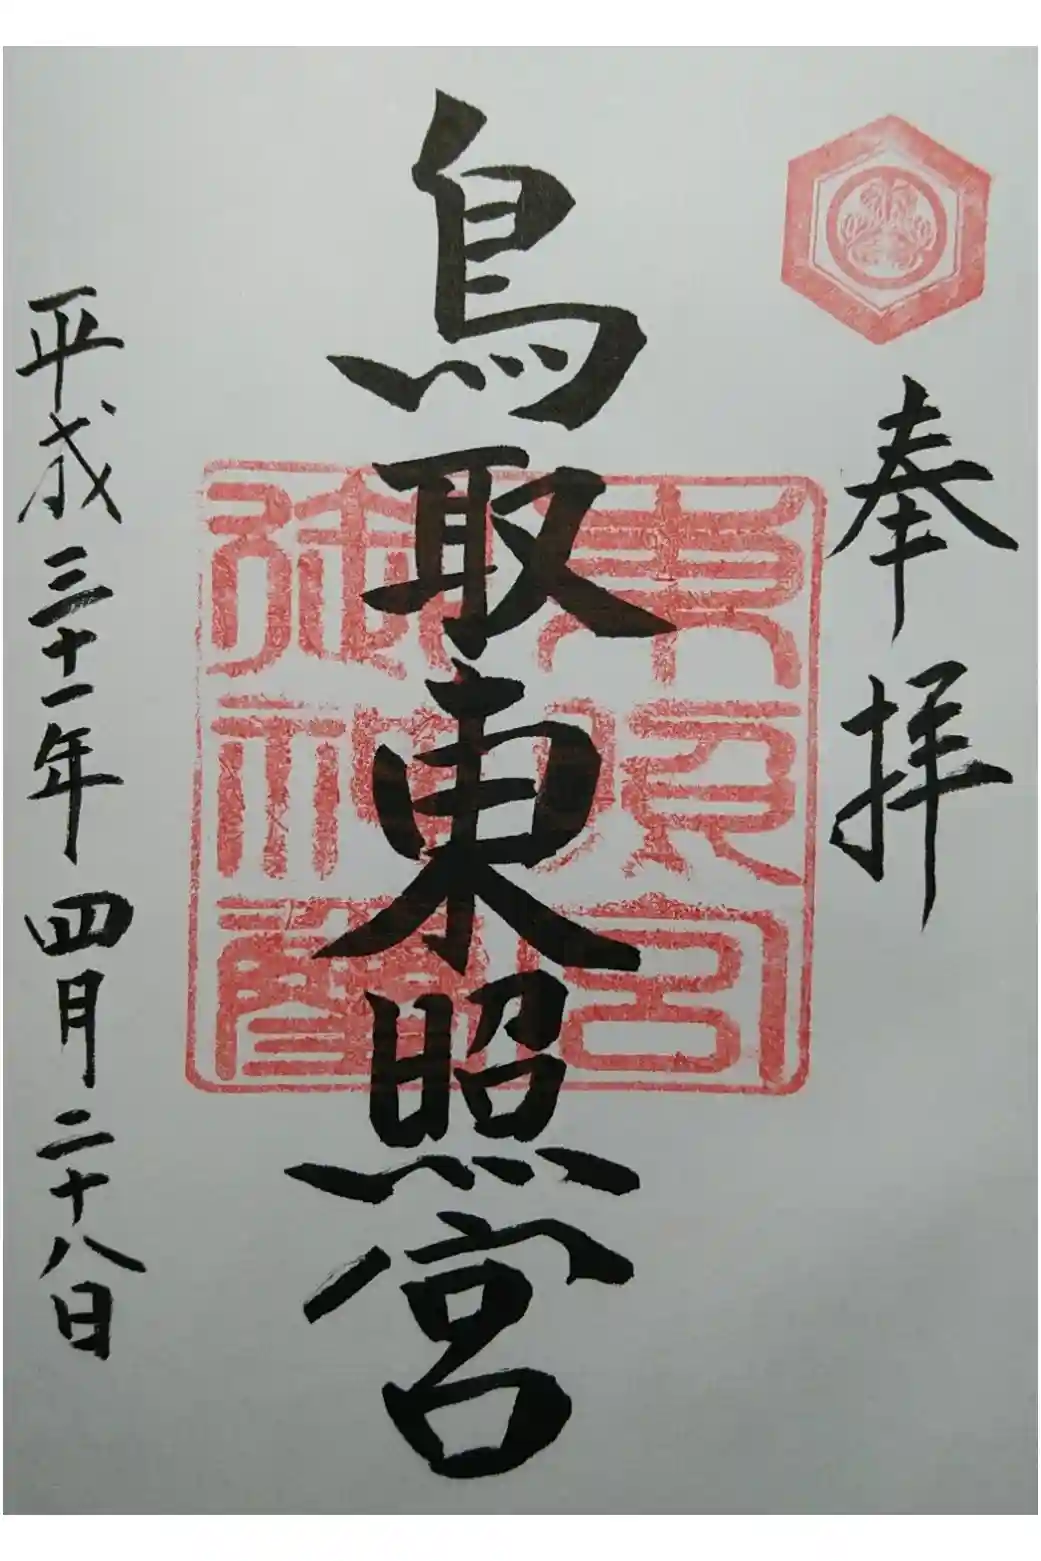 奉拝
鳥取東照宮
平成三十一年四月二十八日